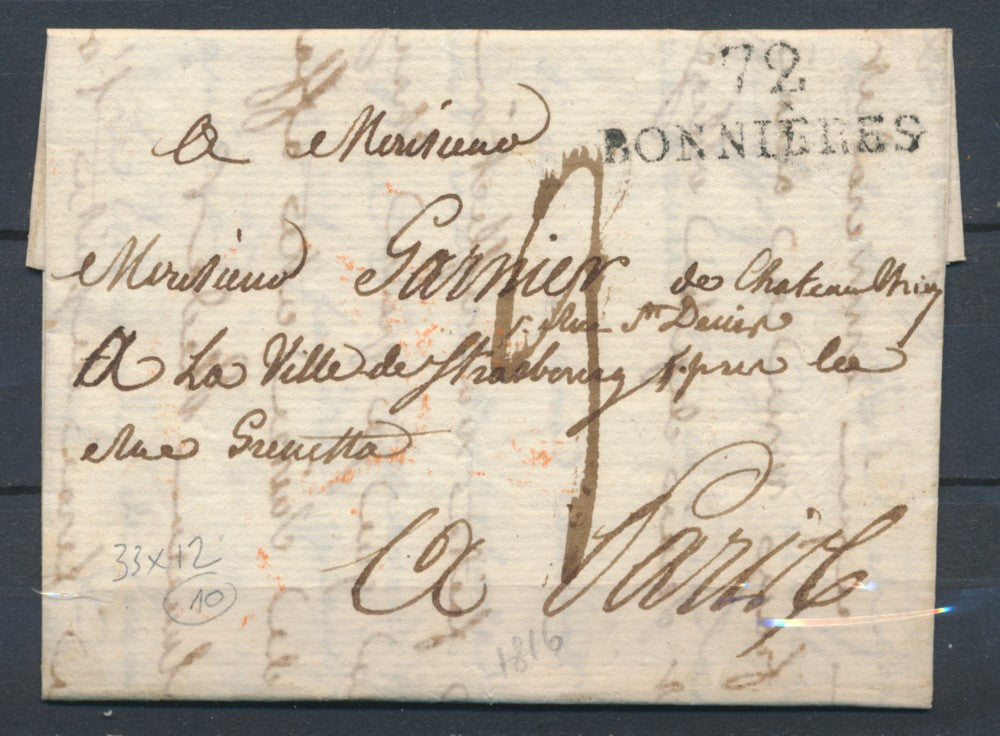 72
BONNIÈRES
A Monsieur
Monsieur Garnier de Chateau Thiery
rue St Denis
A La Ville de Strasbourg pres la
rue Grenetta
A Paris
33x12
10
1816